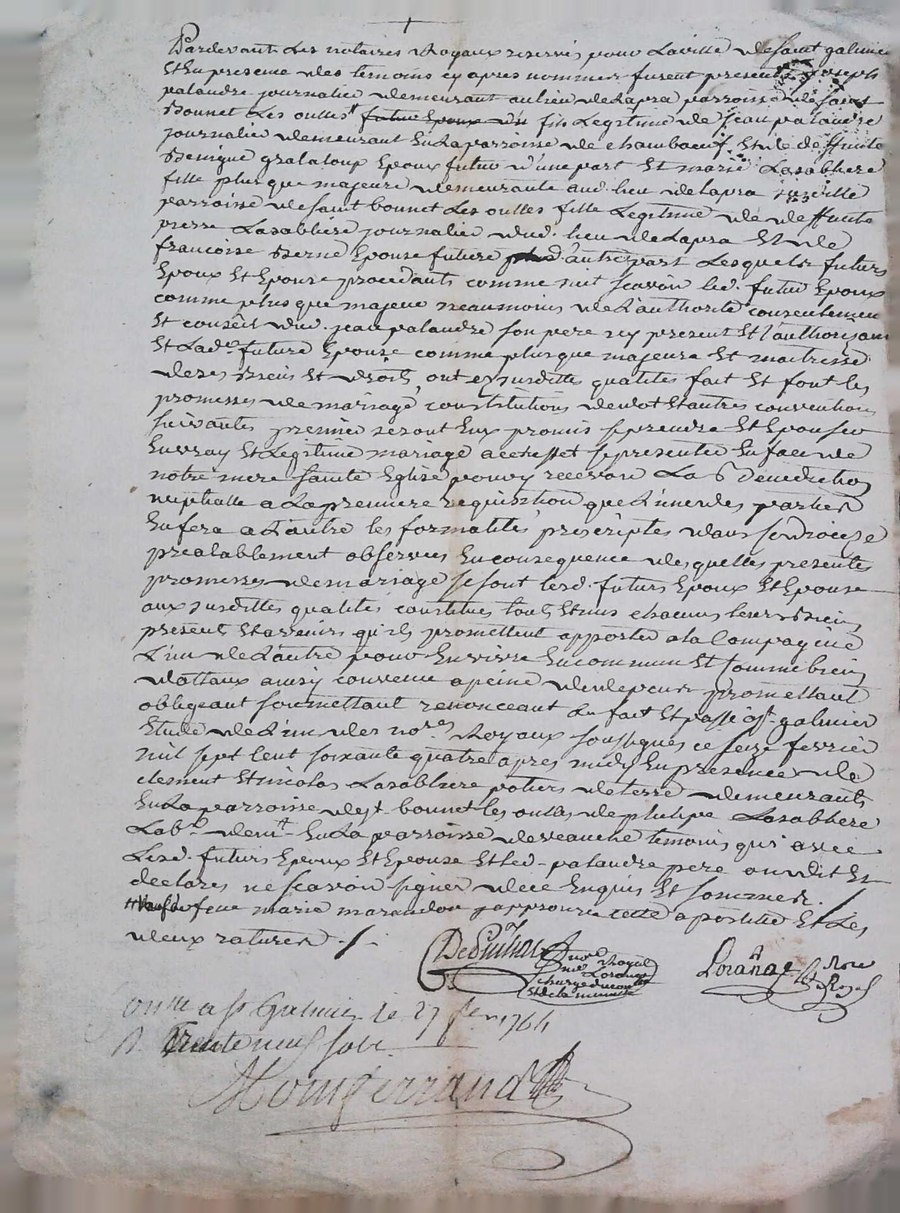 Pardevant Les notaires Royaux reservés pour Laville de saint galmier
Et En presence des temoins cy apres nommés furent presents Joseph
palandre journalie demeurant au lieu de Lapra parroisse de saint
Bonnet Les oulles futur Epoux fils Legitime de jean palandre
journalie demeurant En La parroisse de chamboeuf Et de deffunte
Benigne gralaloup Epoux futur d'une part Et marie Lasablière
fille plus que majeure demeurante aud. lieu de Lapra
parroisse de saint bonnet Les oulles fille Legitime de deffunts
pierre Lasablière journalie dud. lieu de Lapra Et de
francoise Berne Epouse future d'autre part Lesquels futurs
Epoux Et Epouse procedants comme suit scavoir led. futur Epoux
comme plus que majeur neaumoins de L'authorité consentement
Et conseil dud. jean palandre son pere icy present Et L'authorisant
Et Lad. future Epouse comme plus que majeure Et maitresse
de ses Biens Et droits, ont Esdittes qualités fait Et font les
promesses de mariage constitutions de dot Et autres conventions
suivantes premier seront Eux promis se prendre Et Epouser
En vray Et Legitime mariage a cet effet se presenter En face de
notre mere sainte Eglise pour y recevoir La Benediction
nuptialle a La premiere requisition que L'un des parties
En fera a L'autre les formalités prescriptes dans ce diocese
prealablement observées En consequence desquelles presentes
promesses de mariage se sont lesd. futurs Epoux Et Epouse
aux susdittes qualités constitués tous Et uns chacuns leurs Biens
presents Et avenirs qu'ils promettent apporter a la Compagnie
L'un de L'autre pour En vivre En commun Et Comme biens
dottaux ainsy convenu a peine de depens promettant
obligeant soumettant renonceant &a fait Et passé a st. galmier
Etude de L'un des nores Royaux soussignés ce seize fevrier
mil sept Cent soixante quatre apres midy En presence de
clement Et nicolas Lasablière potiers de terre demeurants
En La parroisse de st. bonnet les oulles de philipe Lasablière
Labr demt En La parroisse de veauche temoins qui avec
Lesd. futurs Epoux Et Epouse Et led. palandre pere ont dit Et
declarés ne scavoir signer de ce Enquis Et sommés.
feue marie marandon j'approuve cette apostille Et Les
deux ratures ./.
nore Royal
Lorange
Et de la minute
Lorange
nore
Royal
a st Galmier le 27 fer 1764
R. trente neuf sols
Montferrand